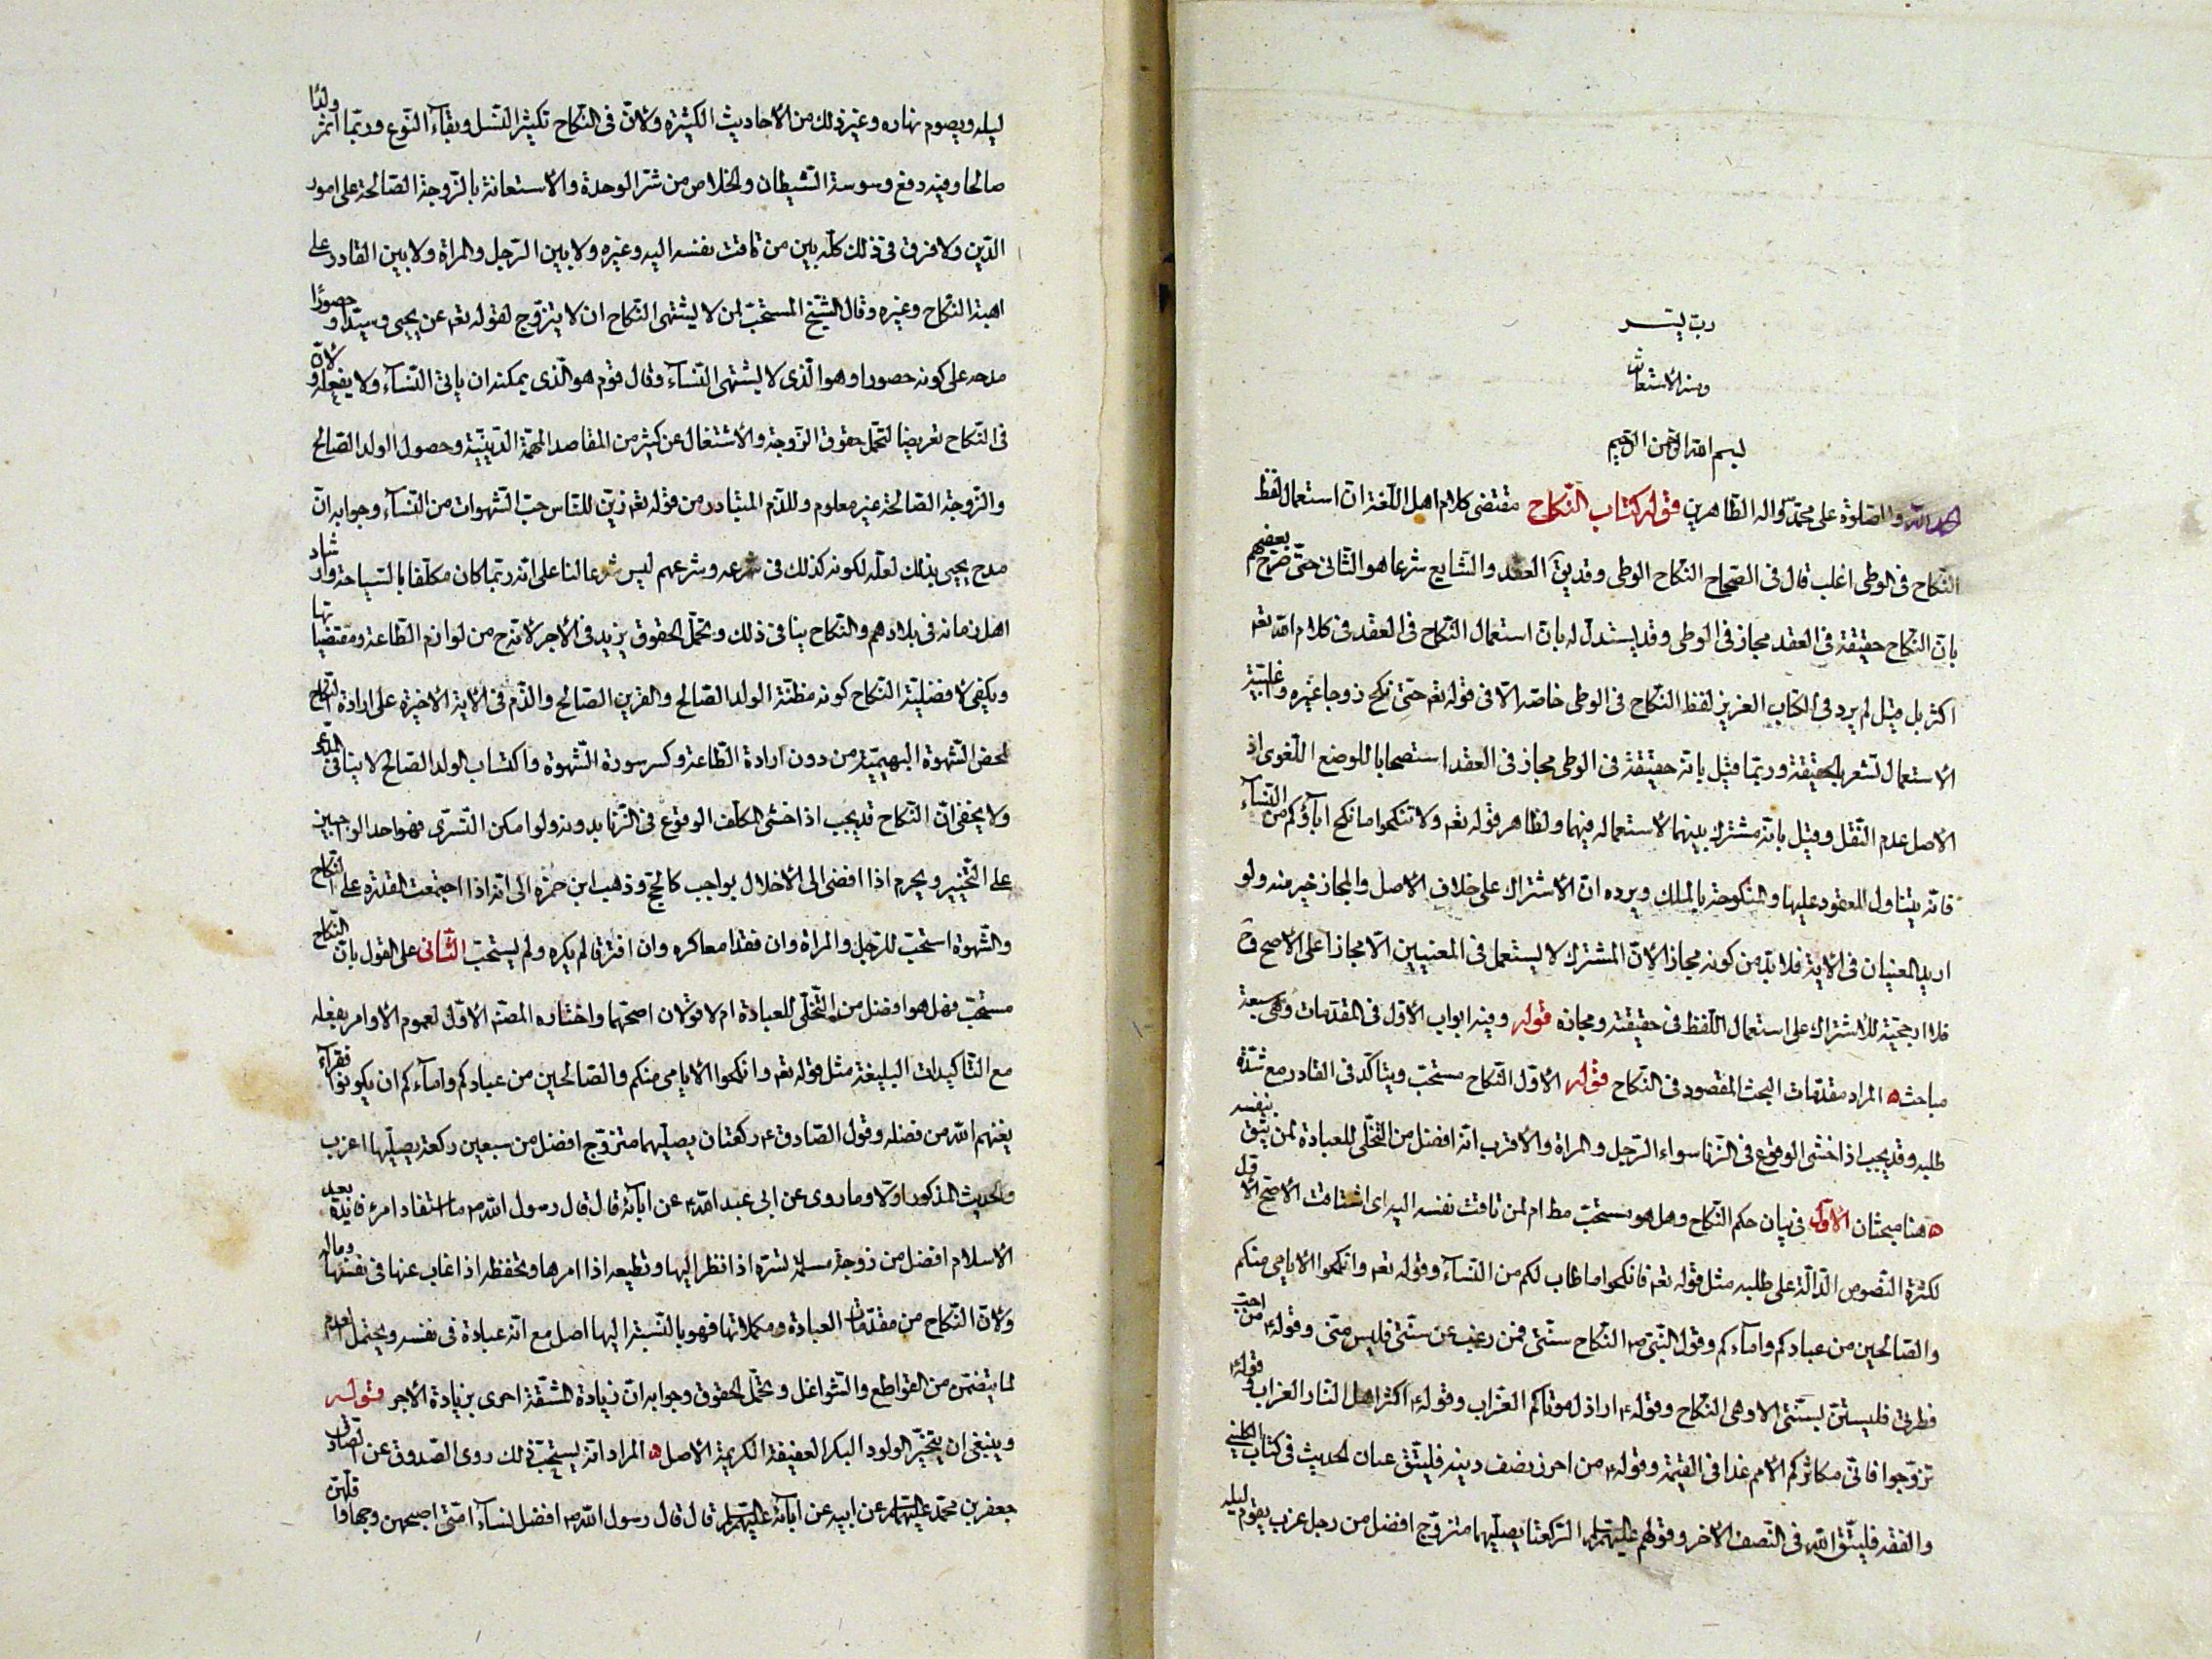 رب يسر
ومنه الاستعانة
بسم الله الرحمن الرحيم
الحمد لله والصلوة على محمد واله الطاهرين قوله كتاب النكاح مقتضى كلام اهل اللغة ان استعمال لفظ
النكاح فى الوطى اغلب قال فى الصحاح النكاح الوطى وقد يق العقد والشايع شرعا هو الثانى حتى صرح بعضهم
بان النكاح حقيقة فى العقد مجاز فى الوطى وقد يستدل له بان استعمال النكاح فى العقد فى كلام الله تعه
اكثر بل قيل لم يرد فى الكتاب العزيز لفظ النكاح فى الوطى خاصة الا فى قوله تعه حتى تنكح زوجا غيره واغلبية
الاستعمال تشعر بالحقيقة وربما قيل بانه حقيقة فى الوطى مجاز فى العقد استصحابا للوضع اللغوى اذ
الاصل عدم النقل وقيل بانه مشترك بينهما لاستعماله فيهما ولظاهر قوله تعه ولا تنكحوا ما نكح اباؤكم من النسآء
فانه يتناول المعقود عليها والمنكوحة بالملك ويرده ان الاشتراك على خلاف الاصل والمجاز خير منه ولو
اريد المعنيان فى الاية فلا بد من كونه مجازا لان المشترك لا يستعمل فى المعنيين الا مجازا على الاصح وح
فلا ارجحية للاشتراك على استعمال اللفظ فى حقيقته ومجازه قوله وفيه ابواب الاول فى المقدمات وهى سبعة
مباحث ه المراد مقدمات البحث المقصود فى النكاح قوله الاول النكاح مستحب ويتاكد فى القادر مع شدة
طلبه وقد يجب اذا خشى الوقوع فى الزنا سواء الرجل والمراة والاقرب انه افضل من التخلى للعبادة لمن يثق بنفسه
ه هنا مبحثان الاول فى بيان حكم النكاح وهل هو مستحب مط ام لمن تاقت نفسه اليه اى اشتاقت الاصح الاول
لكثرة النصوص الدالة على طلبه مثل قوله تعه فانكحوا ما طاب لكم من النسآء وقوله تعه وانكحوا الايامى منكم
والصالحين من عبادكم وامآءكم وقول النبى ص النكاح سنتى فمن رغب عن سنتى فليس منى وقوله ع من احب
فطرتى فليستن بسنتى الا وهى النكاح وقوله ع اراذل موتاكم العزاب وقوله ع اكثر اهل النار العزاب وقوله ع
تزوجوا فانى مكاثر بكم الامم غدا فى القيمة وقوله ع من احرز نصف دينه فليتق عبان الحديث فى كتاب الكلينى
والفقه فليتق الله فى النصف الاخر وقولهم عليهم السلم الركعتا يصليهما متزوج افضل من رجل عزب يقوم ليله
ليله ويصوم نهاره وغير ذلك من الاحاديث الكثيرة ولان فى النكاح تكثير النسل وبقآء النوع وربما اثمر ولدا
صالحا وفيه دفع وسوسة الشيطان والخلاص من شر الوحدة والاستعانة بالزوجة الصالحة على امور
الدين ولا فرق فى ذلك كله بين من تاقت نفسه اليه وغيره ولا بين الرجل والمراة ولا بين القادر على
اهبة النكاح وغيره وقال الشيخ المستحب لمن لا يشتهى النكاح ان لا يتزوج لقوله تعه عن يحيى وسيدا وحصورا
مدحه على كونه حصورا وهو الذى لا يشتهى النسآء وقال قوم هو الذى يمكنه ان ياتى النسآء ولا يفعله ولان
فى النكاح تعريضا لتحمل حقوق الزوجة والاشتغال عن كثير من المقاصد المهمة الدينية وحصول الولد الصالح
والزوجة الصالحة غير معلوم وللذم المتبادر من قوله تعه زين للناس حب الشهوات من النسآء وجوابه ان
مدح يحيى بذلك لعله لكونه كذلك فى شرعه وشرعهم ليس شرعا لنا على انه ربما كان مكلفا بالسياحة وارشاد
اهل زمانه فى بلادهم والنكاح ينافى ذلك وتحمل الحقوق يزيد فى الاجر لانه ح من لوازم الطاعة ومقتضياتها
ويكفى لافضلية النكاح كونه مظنة الولد الصالح والقرين الصالح والذم فى الاية الاخيرة على ارادة النكاح
لمحض الشهوة البهيمية من دون ارادة الطاعة وكسر سورة الشهوة واكتساب الولد الصالح لا ينافى المدعى
ولا يخفى ان النكاح قد يجب اذا خشى المكلف الوقوع فى الزنا بدونه ولو امكن التسرى فهو احد الواجبين
على التخيير ويحرم اذا افضى الى الاخلال بواجب كالحج وذهب ابن حمزة الى انه اذا اجتمعت القدرة على النكاح
والشهوة استحب للرجل والمراة وان فقدا معا كره وان افترقا لم يكره ولم يستحب الثانى على القول بان النكاح
مستحب فهل هو افضل من التخلى للعبادة ام لا قولان اصحهما واختاره المصنف الاول لعموم الاوامر بفعله
مع التاكيدات البليغة مثل قوله تعه وانكحوا الايامى منكم والصالحين من عبادكم وامآءكم ان يكونوا فقرآء
يغنهم الله من فضله وقول الصادق ع ركعتان يصليهما متزوج افضل من سبعين ركعة يصليها اعزب
والحديث المذكور اولا وما روى عن ابى عبد الله ع عن ابآئه قال قال رسول الله ص ما استفاد امرء فايدة بعد
الاسلام افضل من زوجة مسلمة تسره اذا نظر اليها وتطيعه اذا امرها وتحفظه اذا غاب عنها فى نفسها وماله
ولان النكاح من مقدمات العبادة ومكملاتها فهو بالنسبة اليها اصل مع انه عبادة فى نفسه ويحتمل العدم
لما يتضمن من القواطع والشواغل وتحمل الحقوق وجوابه ان زيادة المشقة احرى بزيادة الاجر قوله
وينبغى ان يتخير الولود البكر العفيفة الكريمة الاصل ه المراد انه يستحب ذلك روى الصدوق عن الصادق
جعفر بن محمد عليهما السلم عن ابيه عن ابآئه عليهم السلم قال قال رسول الله ص افضل نسآء امتى اصبحهن وجها واقلهن